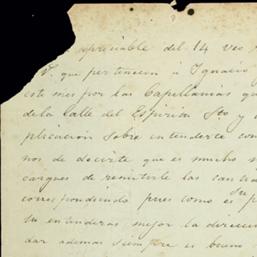 apreciable del 14 veo
V. que pertenecen á Ignacio
este mes por las Capellanias q
de la Calle del Espiritu Sto y
plicación sobre entenderte co
nos de decirte que es mucho
cargues de remitirle las canti
correspondiendo pues como es p
tu entenderas mejor la direcci
dar ademas siempre es bueno